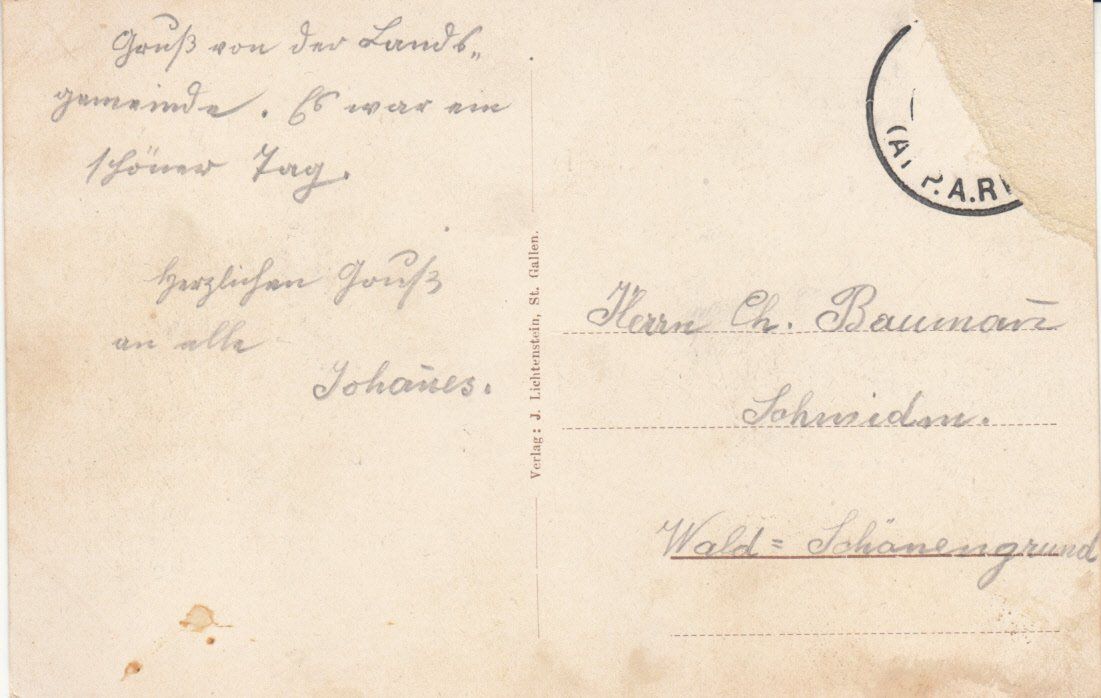 Gruß von der Lands-
gemeinde. Es war ein
schöner Tag.
Herzlichen Gruß
an alle
Johan̄es.
Verlag: J. Lichtenstein, St. Gallen.
P.A.R
Herrn Ch. Bauman̄
Schmidm.
Wald = Schönengrund